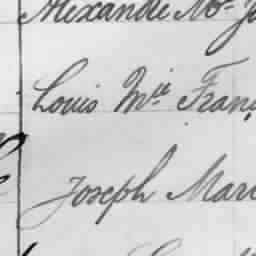 Alexandre M
Louis M.ie Franç
Joseph Mari